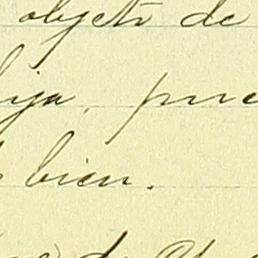 objeto de
hija, pue
bien.